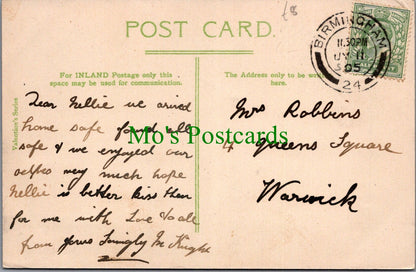 £8
POST CARD.
BIRMINGHAM
11.30PM
JY 11
05
24
For INLAND Postage only this
space may be used for communication.
The Address only to be
written here.
Valentine's Series
Dear Nellie we arived
home safe found all
safe & we enjoyed our
selves very much hope
Nellie is better kiss them
for me with Love to all
from yours Lovingly M Knight
Mrs Robbins
4 Queens Square
Warwick
Mo's Postcards